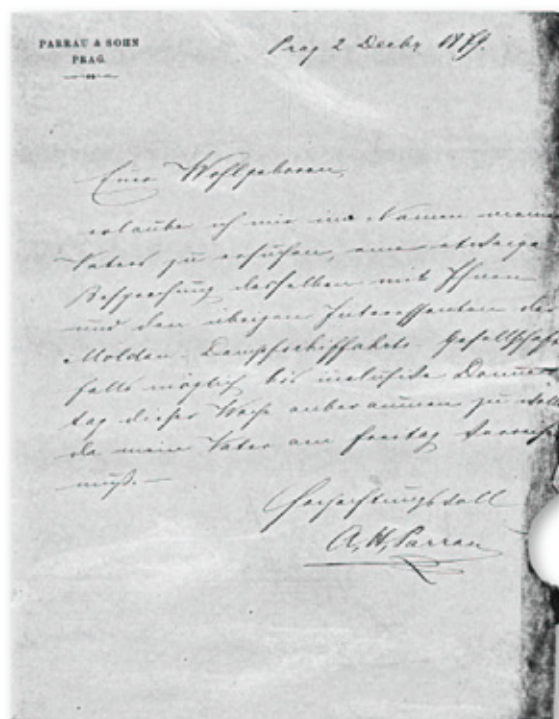 PARRAU & SOHN
PRAG.
Prag 2 Decbr 1879.
Euer Wohlgeboren,
erlaube ich mir im Namen meines
Vaters zu ersuchen, eine etwaige
Besprechung desselben mit Ihnen
und den übrigen Interessenten der
Moldau-Dampfschiffahrts Gesellschaft
falls möglich bis inclusive Donners
tag dieser Woche anberaumen zu wollen
da mein Vater am Freitag verreisen
muß.—
Hochachtungsvoll
A. H. Parrau